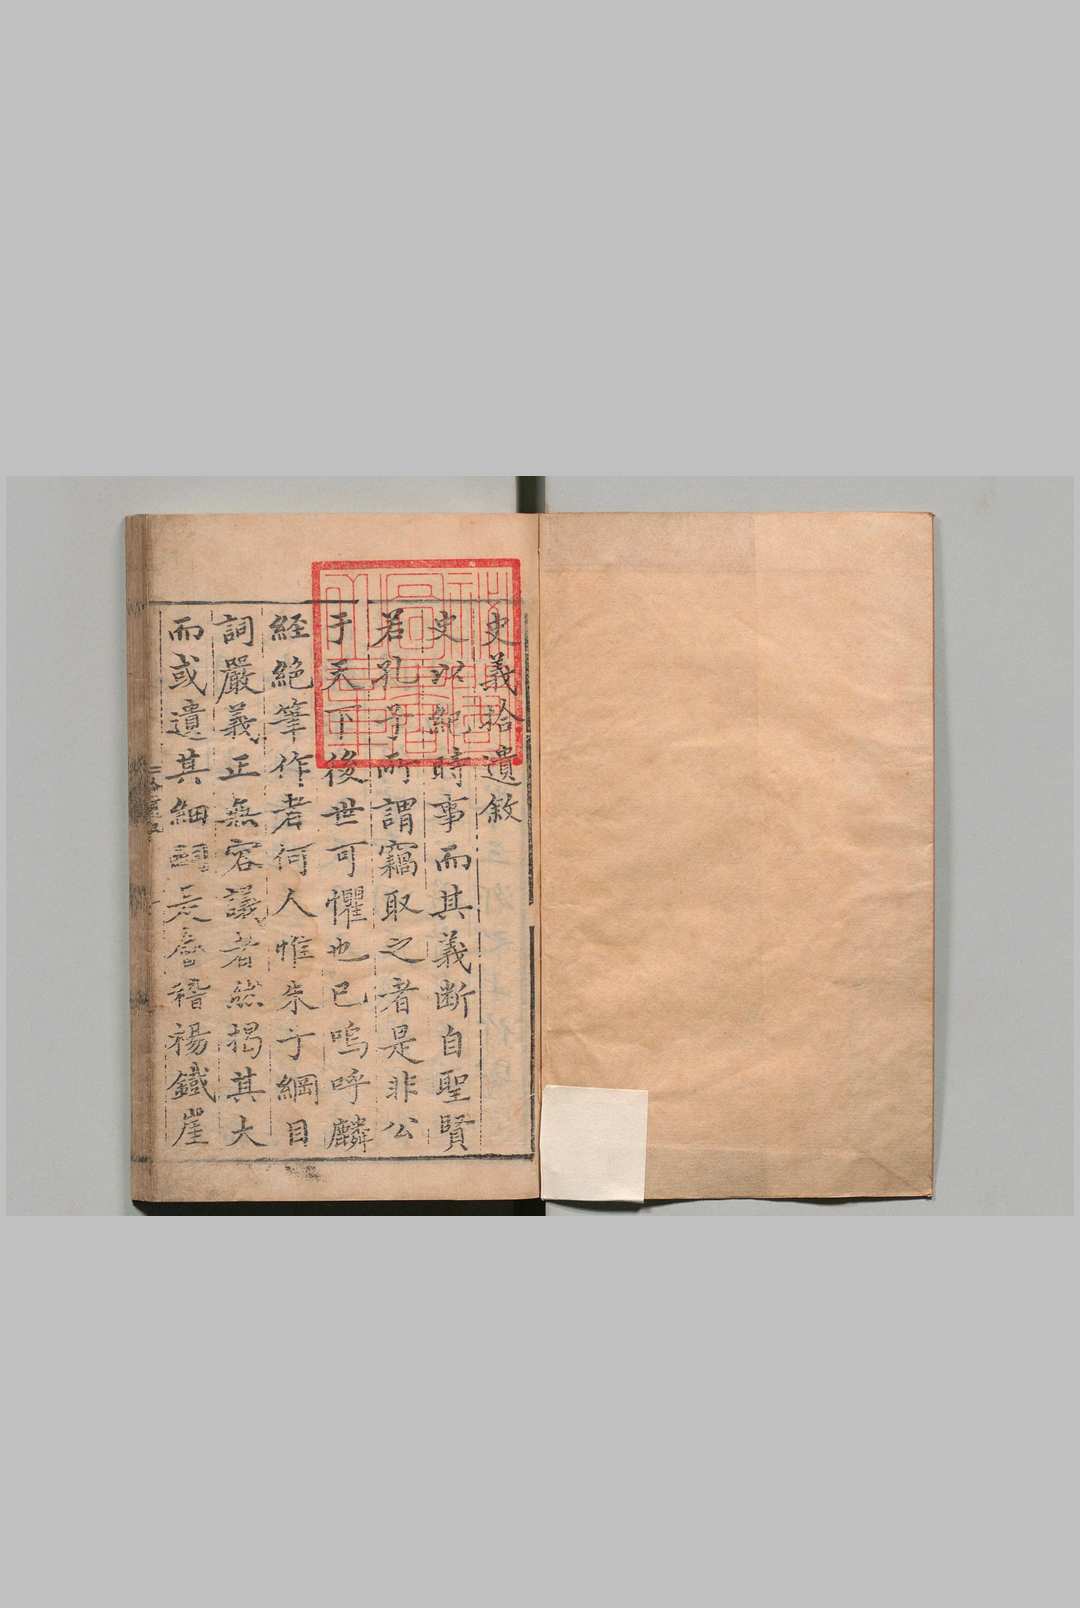 史義拾遺敘
史以紀時事而其義斷自聖賢
若孔子所謂竊取之者是非公
于天下後世可懼也已嗚呼麟
経絶筆作者何人惟朱子綱目
詞嚴義正無容議者然揭其大
而或遺其細詞尚會稽楊鐵崖